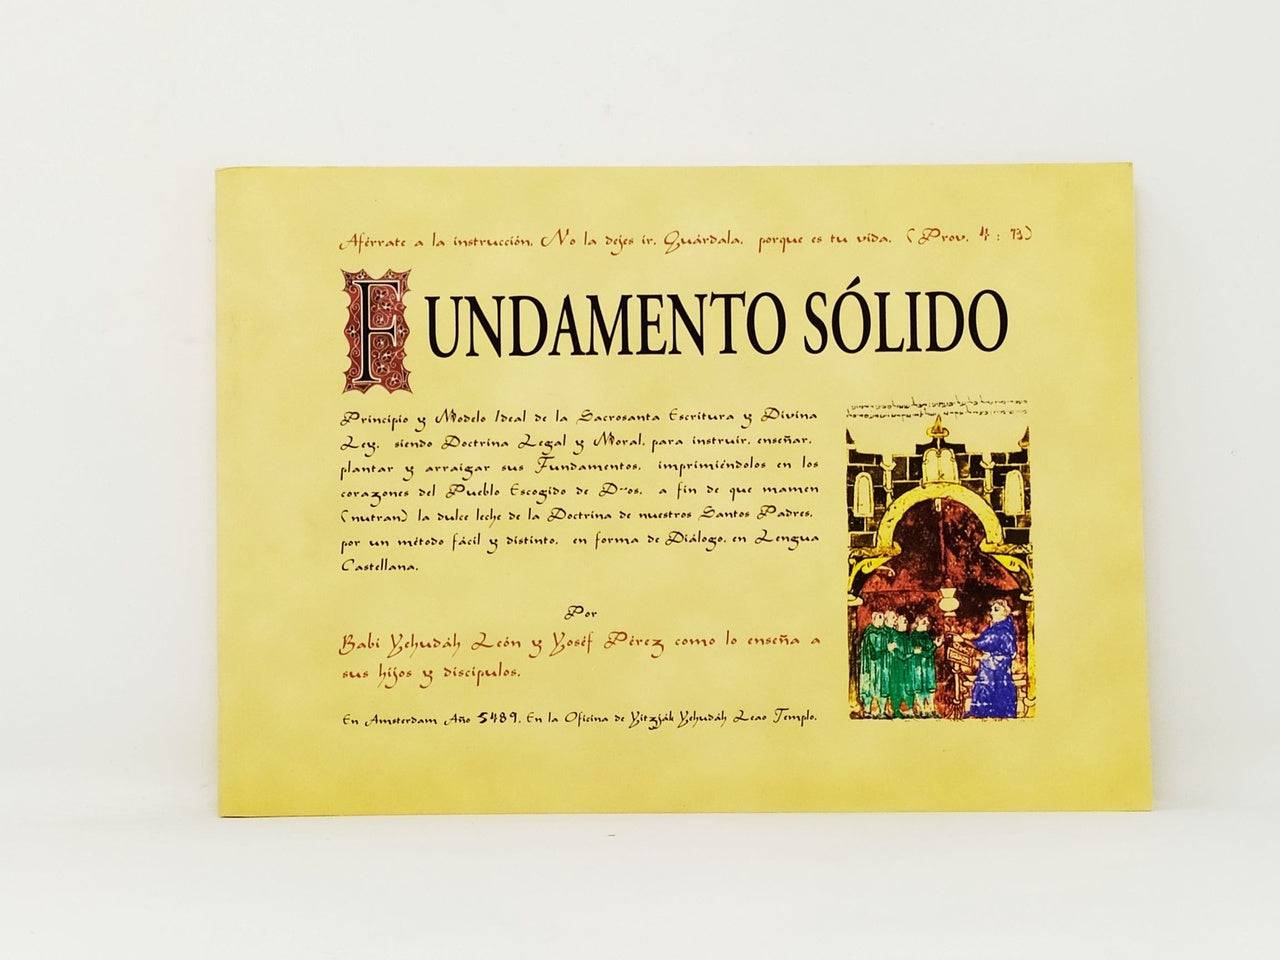 Aférrate a la instrucción. No la dejes ir. Guárdala, porque es tu vida. (Prov. 4 : 13)
FUNDAMENTO SÓLIDO
Principio y Modelo Ideal de la Sacrosanta Escritura y Divina
Ley, siendo Doctrina Legal y Moral, para instruir, enseñar,
plantar y arraigar sus Fundamentos, imprimiéndolos en los
corazones del Pueblo Escogido de D--os, a fin de que mamen
(nutran) la dulce leche de la Doctrina de nuestros Santos Padres,
por un método fácil y distinto, en forma de Diálogo, en Lengua
Castellana.
Por
Rabi Yehudáh León y Yoséf Pérez como lo enseña a
sus hijos y discípulos.
En Amsterdam Año 5489. En la Oficina de Yitzják Yehudáh Leao Templo.